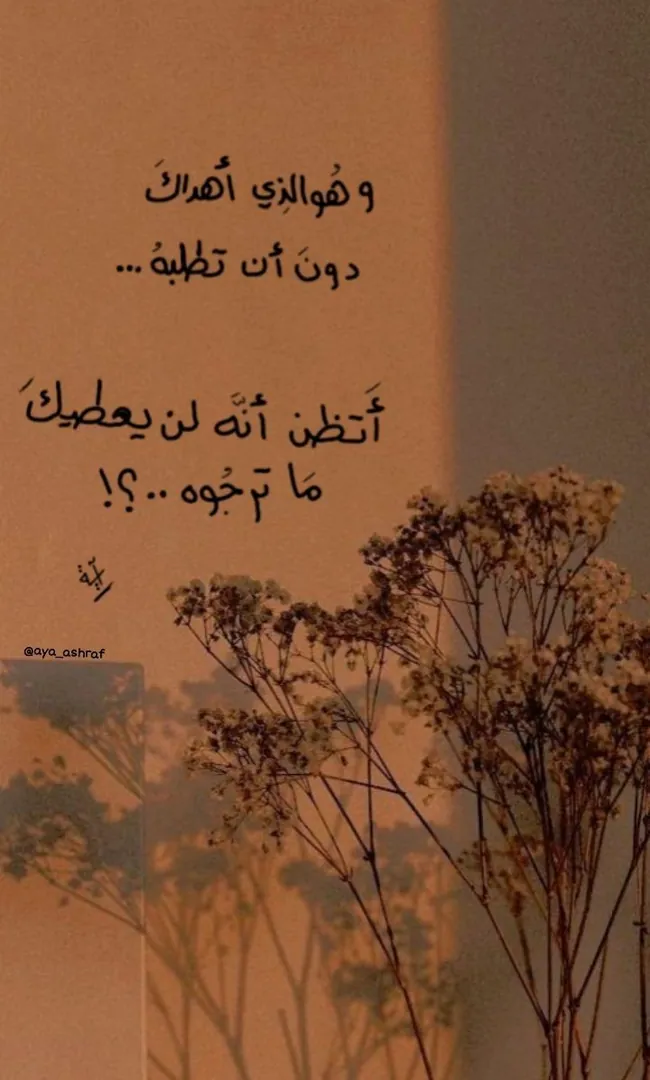 و هُوالذِي أهداكَ
دونَ أن تطلبهُ ...
أَتظن أنَّه لن يعطيكَ
مَا ترجُوه ..؟!
آية
@aya_ashraf